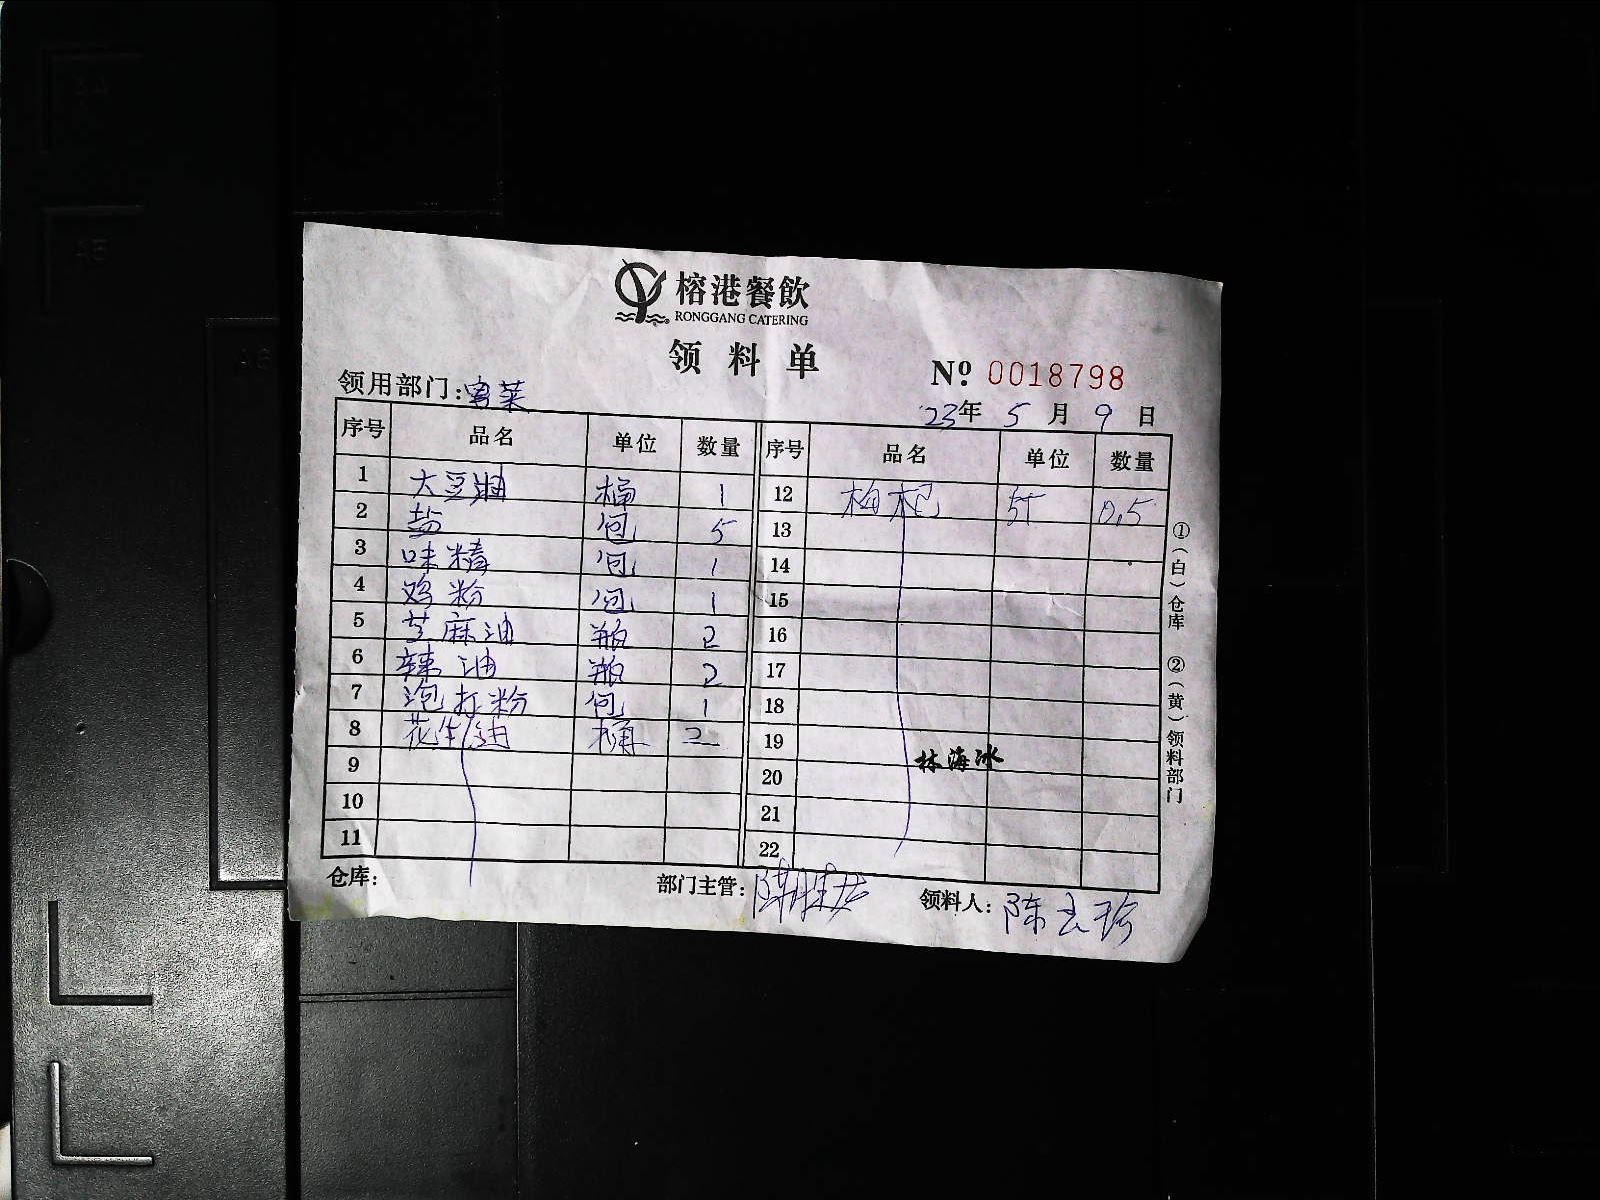 榕港餐飲
RONGGANG CATERING
领料单
№ 0018798
领用部门:
23年 5 月 9 日
序号 品名 单位 数量 序号 品名 单位 数量
1 大豆油 桶 1 12 枸杞 斤 0.5
2 盐 包 5 13
3 味精 包 1 14
4 鸡粉 包 1 15
5 芝麻油 瓶 2 16
6 辣油 瓶 2 17
7 泡打粉 包 1 18
8 花生油 桶 2 19
林海冰
9 20
10 21
11 22
仓库: 部门主管:陈 领料人:陈玉珍
①(白)仓库 ②(黄)领料部门